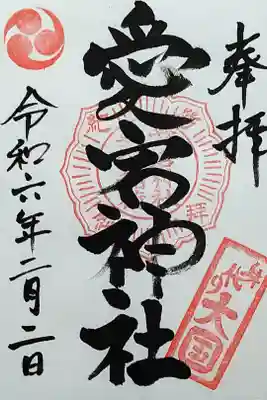 奉拝
愛宕神社
令和六年二月二日
大国